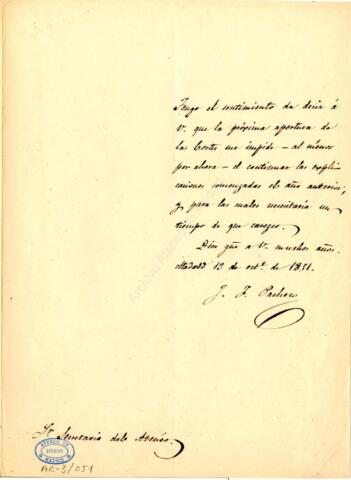 Tengo el sentimiento de decir á
V. que la próxima apertura de
las Cortes me impide - al ménos
por ahora - el continuar las espli-
caciones comenzadas el año anterior,
y para las cuales necesitaría un
tiempo de que carezco.
Dios gue á V. muchos años.
Madrid 13 de octe. de 1851.
J. F. Pacheco
Sr. Secretario del Ateneo.
ATENEO DE
MADRID
AR-3/051